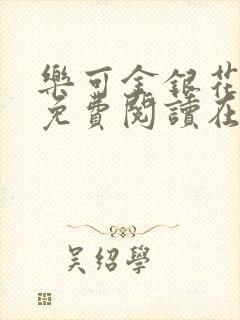 樂可金銀花
免費閱讀在
吳紹學